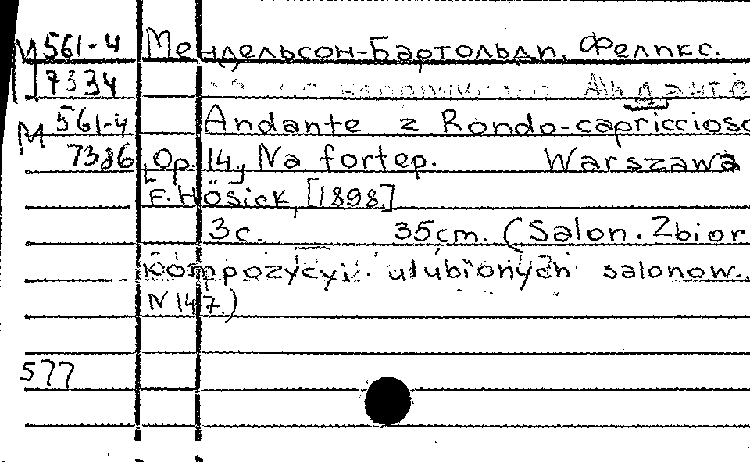 М 561-4 Мендельсон-Бартольди, Феликс.
7334 Анданте
М 561-4 Andante z Rondo-capriccioso
7386 Op. 14, Na fortep. Warszawa
F. Hösick, [1898]
3 с. 35cm. (Salon. Zbior
kompozycyi ulubionych salonow.
N 147)
577